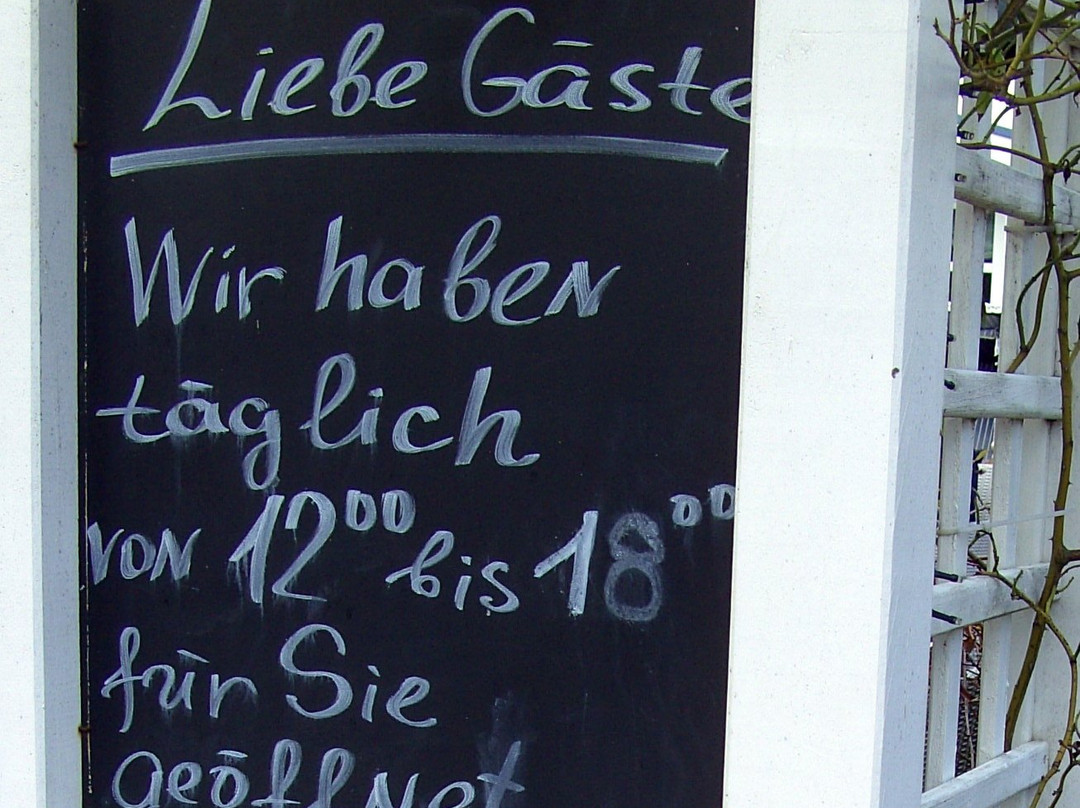 Liebe Gäste
Wir haben
täglich
von 12⁰⁰ bis 18⁰⁰
für Sie
geöffnet